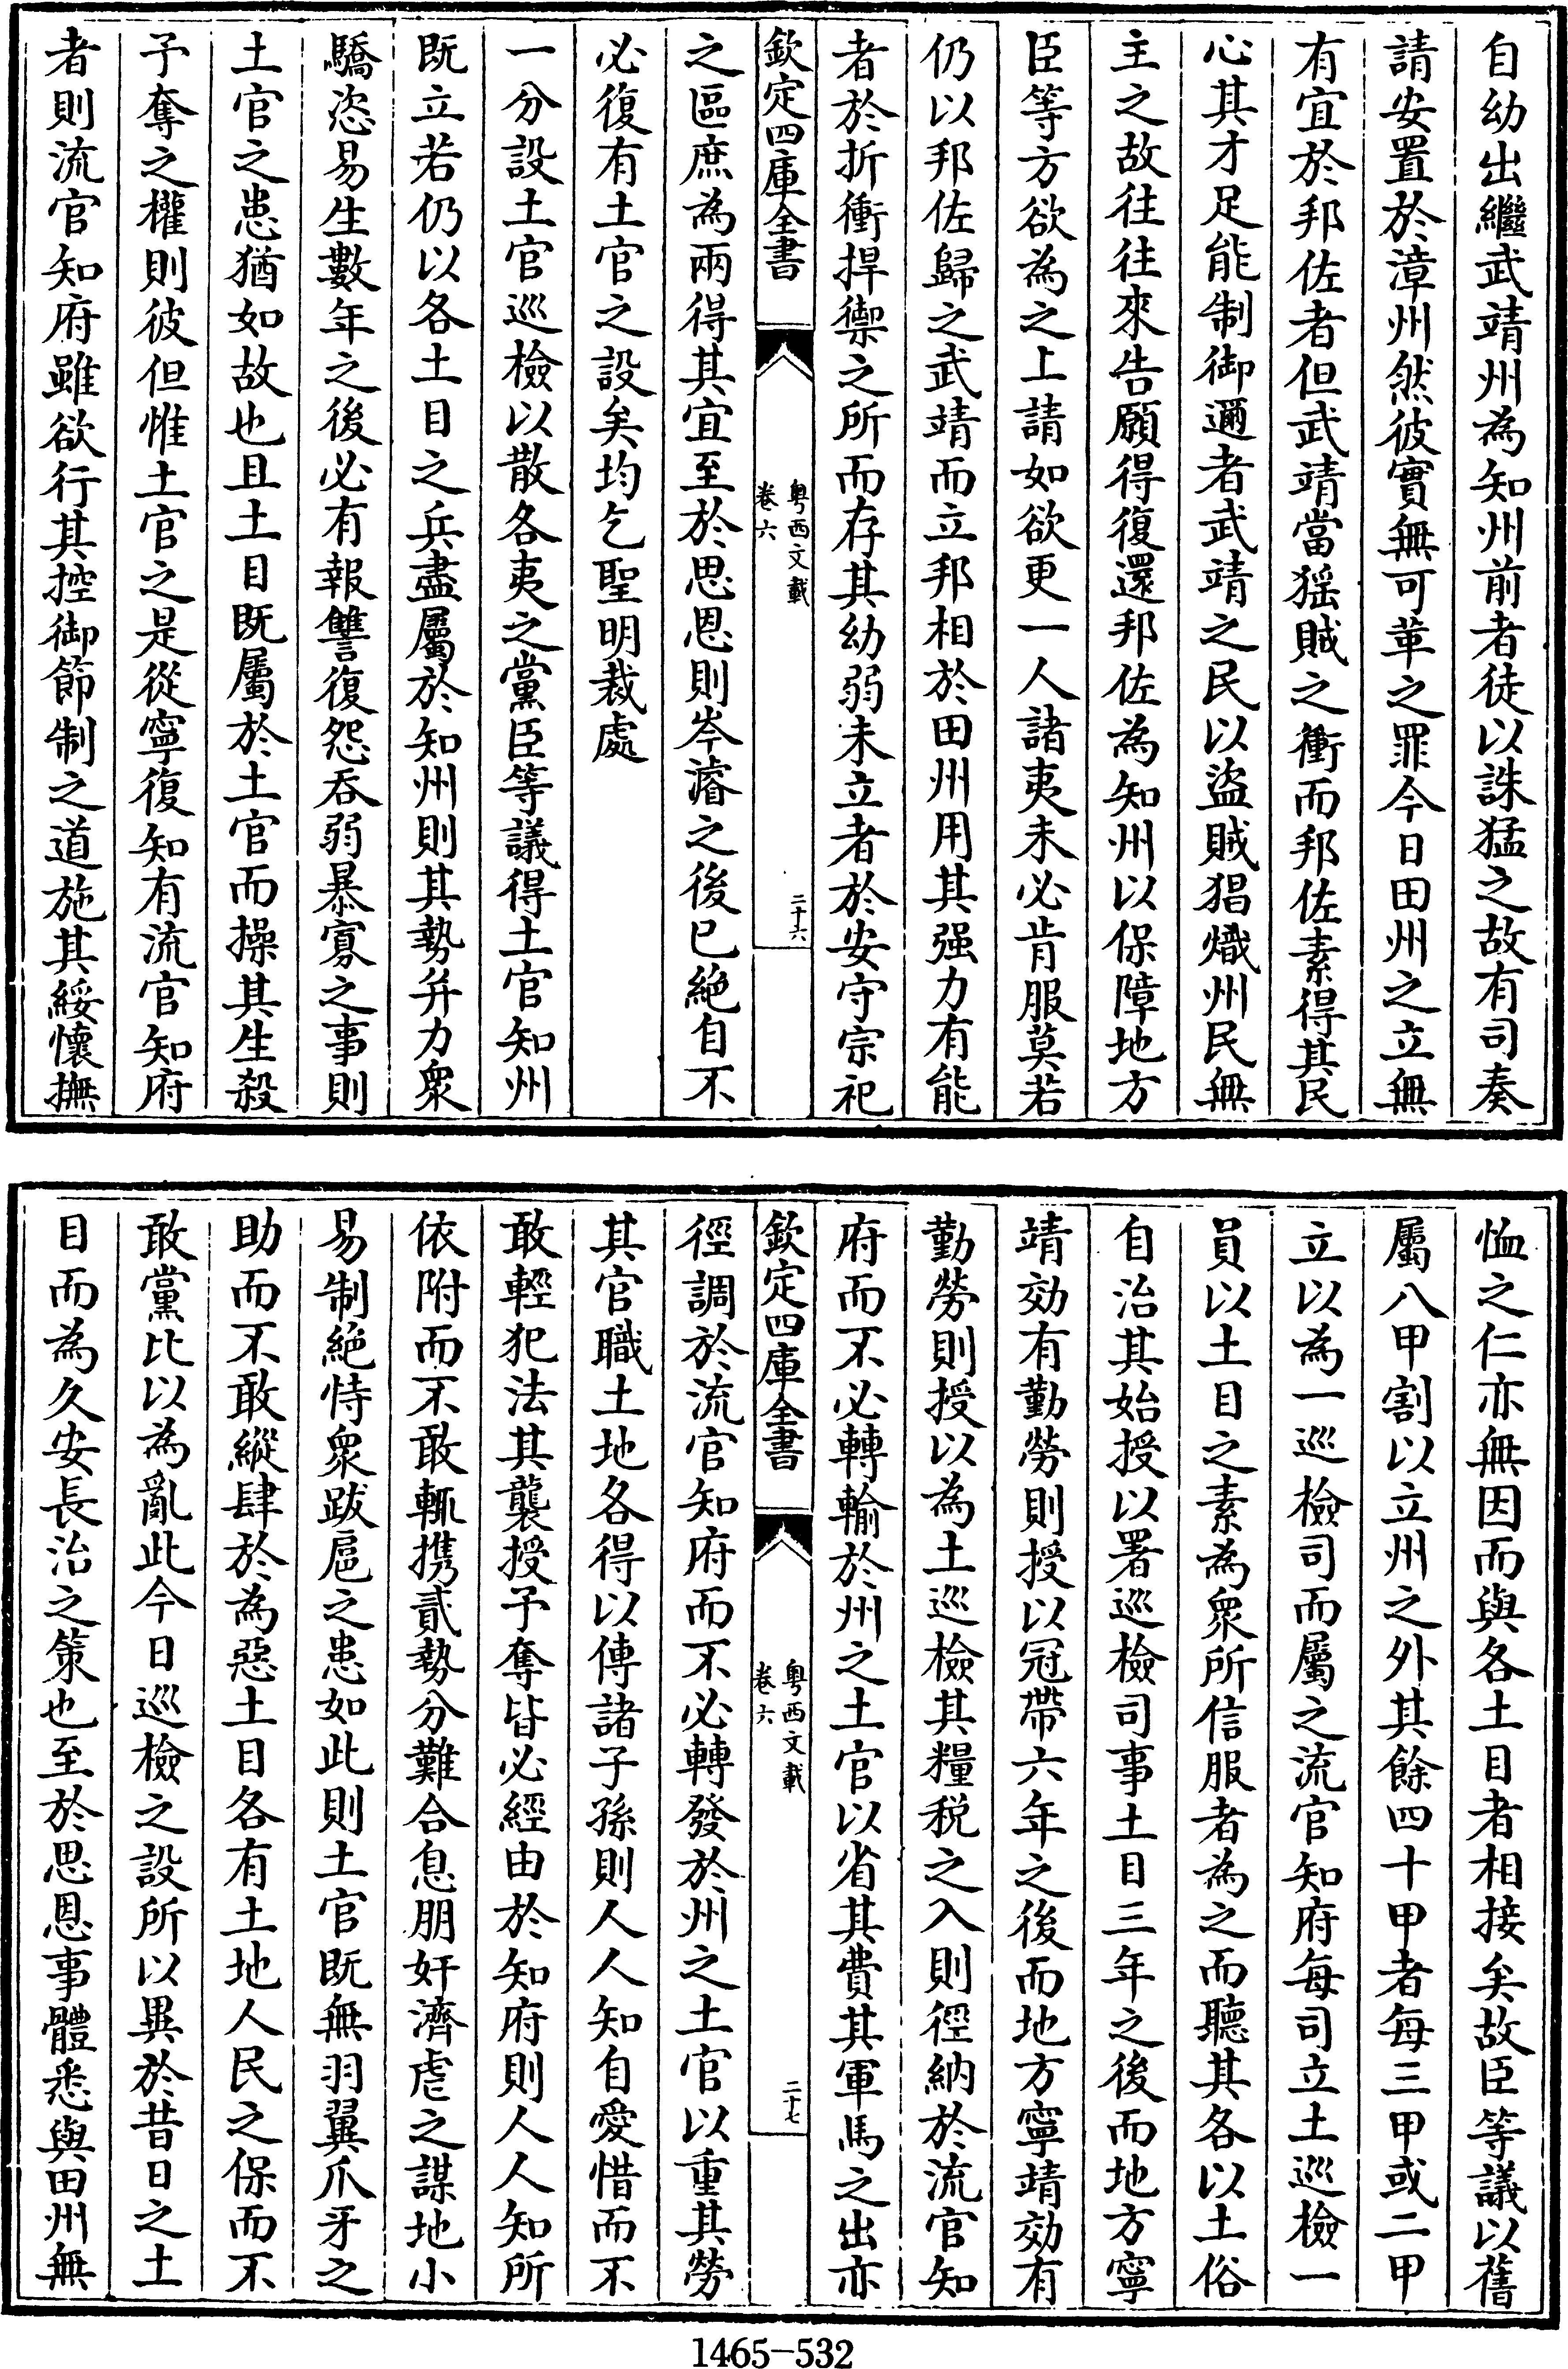 自幼出繼武靖州為知州前者徒以誅猛之故有司奏
請安置於漳州然彼實無可革之罪今日田州之立無
有宜於邦佐者但武靖當猺賊之衝而邦佐素得其民
心其才足能制御邇者武靖之民以盜賊猖熾州民無
主之故往往來告願得復還邦佐為知州以保障地方
臣等方欲為之上請如欲更一人諸夷未必肯服莫若
仍以邦佐歸之武靖而立邦相於田州用其强力有能
者於折衝捍禦之所而存其幼弱未立者於安守宗祀
欽定四庫全書
粵西文載
卷六
二十六
之區庶為兩得其宜至於思恩則岑濬之後已絕自不
必復有土官之設矣均乞聖明裁處
一分設土官巡檢以散各夷之黨臣等議得土官知州
既立若仍以各土目之兵盡屬於知州則其勢并力衆
驕恣易生數年之後必有報讐復怨吞弱暴寡之事則
土官之患猶如故也且土目既屬於土官而操其生殺
予奪之權則彼但惟土官之是從寧復知有流官知府
者則流官知府雖欲行其控御節制之道施其綏懷撫
恤之仁亦無因而與各土目者相接矣故臣等議以舊
屬八甲割以立州之外其餘四十甲者每三甲或二甲
立以為一巡檢司而屬之流官知府每司立土巡檢一
員以土目之素為衆所信服者為之而聽其各以土俗
自治其始授以署巡檢司事土目三年之後而地方寧
靖効有勤勞則授以冠帶六年之後而地方寧靖効有
勤勞則授以為土巡檢其糧税之入則徑納於流官知
府而不必轉輸於州之土官以省其費其軍馬之出亦
欽定四庫全書
粵西文載
卷六
二十七
徑調於流官知府而不必轉發於州之土官以重其勞
其官職土地各得以傳諸子孫則人人知自愛惜而不
敢輕犯法其襲授予奪皆必經由於知府則人人知所
依附而不敢輒携貳勢分難合息朋奸濟虐之謀地小
易制絕恃衆跋扈之患如此則土官既無羽翼爪牙之
助而不敢縱肆於為惡土目各有土地人民之保而不
敢黨比以為亂此今日巡檢之設所以異於昔日之土
目而為久安長治之策也至於思恩事體悉與田州無
1465-532